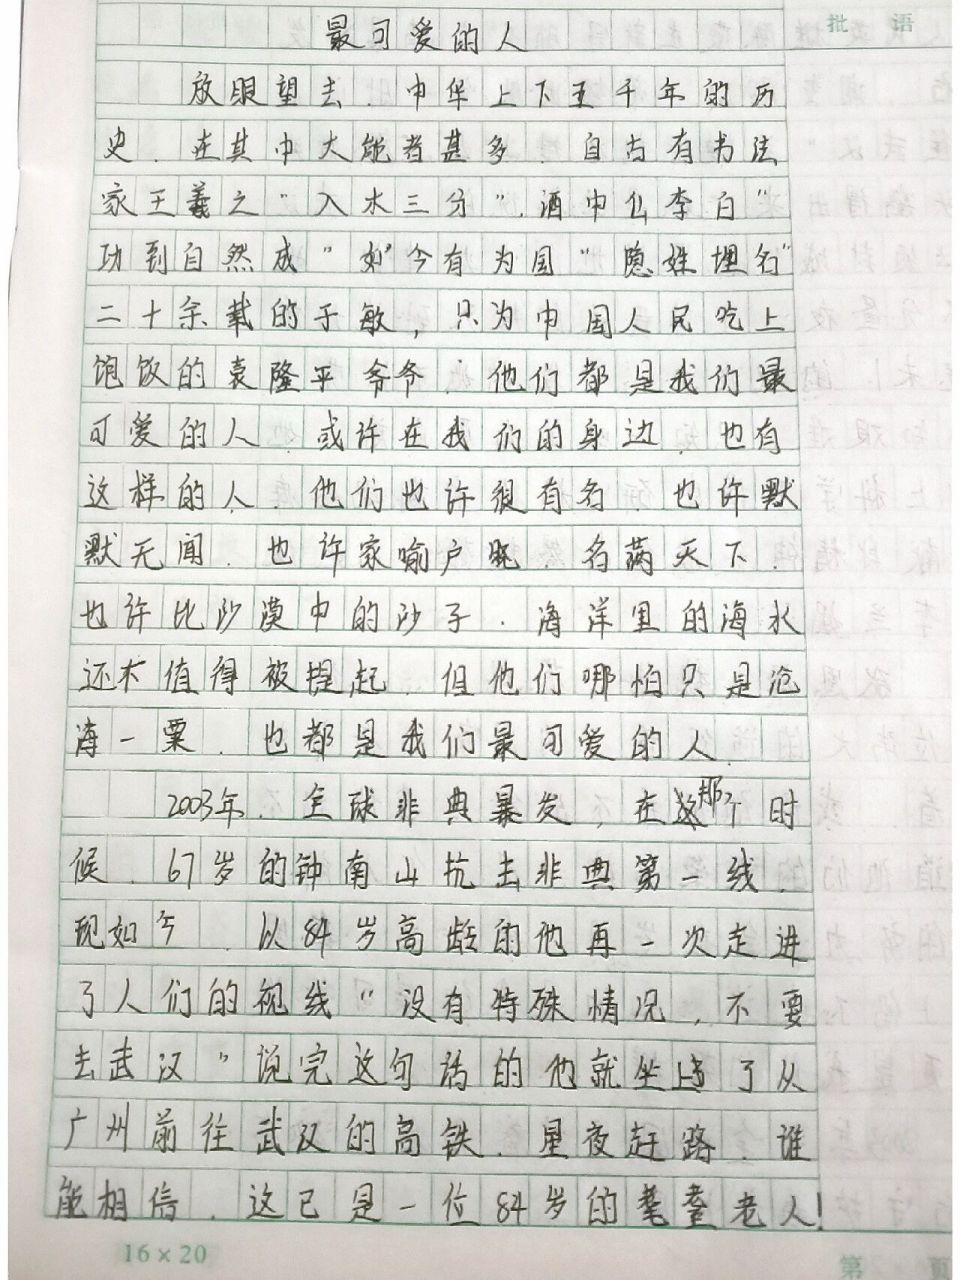 批 语
最可爱的人
放眼望去.中华上下至千年的历
史.在其中大能者甚多.自古有书法
家王羲之“入水三分”.酒中仙李白“
功到自然成”如今有为国“隐姓埋名”
二十余载的于敏,只为中国人民吃上
饱饭的袁隆平爷爷.他们都是我们最
可爱的人.或许在我们的身边.也有
这样的人.他们也许很有名.也许默
默无闻.也许家喻户晓.名满天下.
也许比沙漠中的沙子.海洋里的海水
还不值得被提起.但他们哪怕只是沧
海一粟.也都是我们最可爱的人.
2003年.全球非典暴发,在那个时
候.67岁的钟南山抗击非典第一线.
现如今.以84岁高龄的他再一次走进
了人们的视线“没有特殊情况,不要
去武汉”说完这句话的他就坐上了从
广州前往武汉的高铁.星夜赶路.谁
能相信.这已是一位84岁的耄耋老人!
16×20
第 页